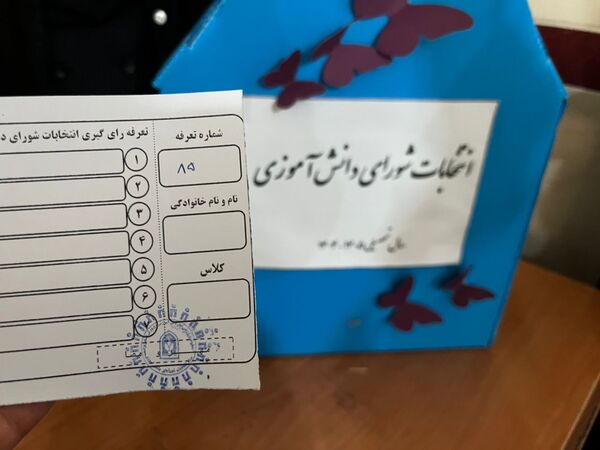 تعرفه رای گیری انتخابات شورای د
۱
۲
۳
۴
۵
۶
۷
شماره تعرفه
۸۵
نام و نام خانوادگی
کلاس
انتخابات شورای دانش آموزی
سال تحصیلی